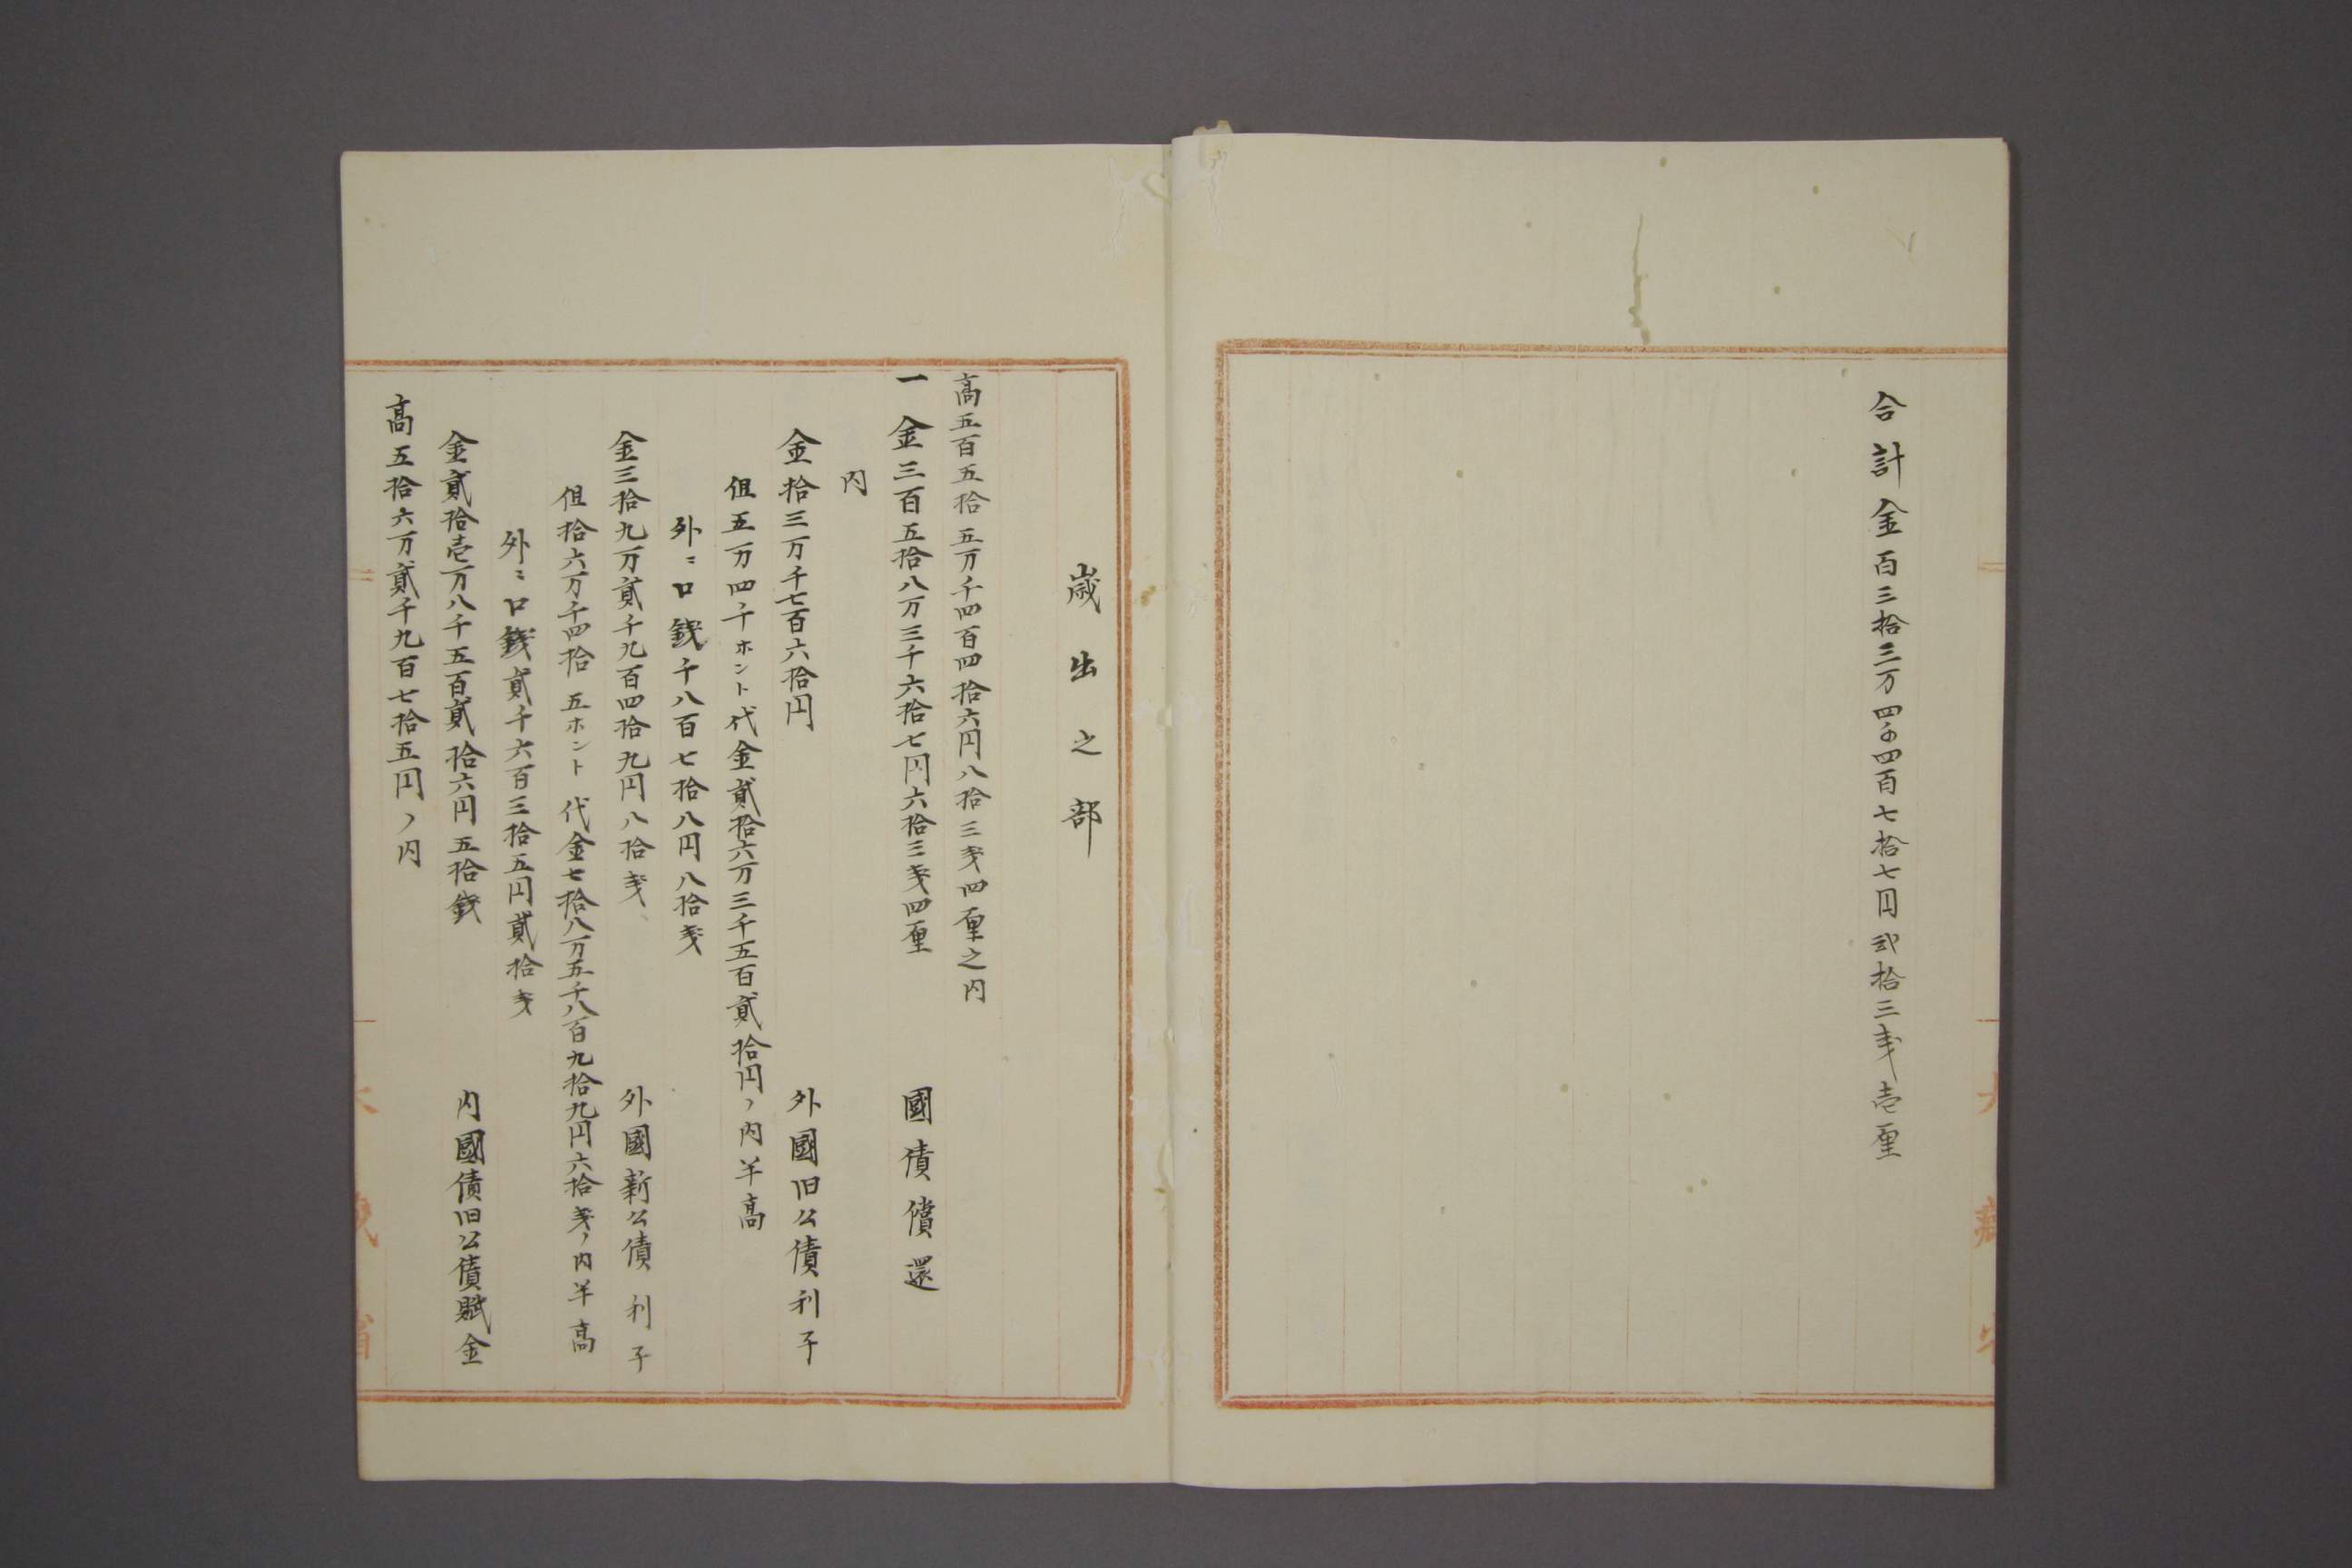 合計金百三拾三万四千四百七拾七円弐拾三戋壱厘
歳出之部
高五百五拾五万千四百四拾六円八拾三戋四厘之内
一金三百五拾八万三千六拾七円六拾三戋四厘 國債償還
内
金拾三万千七百六拾円 外國旧公債利子
但五万四千ホント代金貳拾六万三千五百貳拾円ノ内半高
外ニ口銭千八百七拾八円八拾戋
金三拾九万貳千九百四拾九円八拾戋 外國新公債利子
但拾六万千四拾五ホント代金七拾八万五千八百九拾九円六拾戋ノ内半高
外ニ口銭貳千六百三拾五円貳拾戋
金貳拾壱万八千五百貳拾六円五拾銭 内國債旧公債賦金
高五拾六万貳千九百七拾五円ノ内